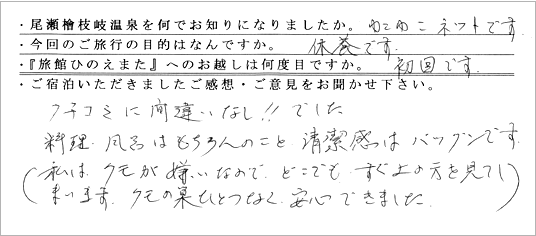 ・尾瀬檜枝岐温泉を何でお知りになりましたか。 わこわこネットです
・今回のご旅行の目的はなんですか。 休養です。
・『旅館ひのえまた』へのお越しは何度目ですか。 初回です。
・ご宿泊いただきましたご感想・ご意見をお聞かせ下さい。
クチコミに間違いなし!!でした
料理・風呂はもちろんのこと 清潔感はバツグンです
(私は、クモが嫌いなので、どこでも すぐ上の方を見てし
まいます。クモの巣ひとつなく、安心できました。)